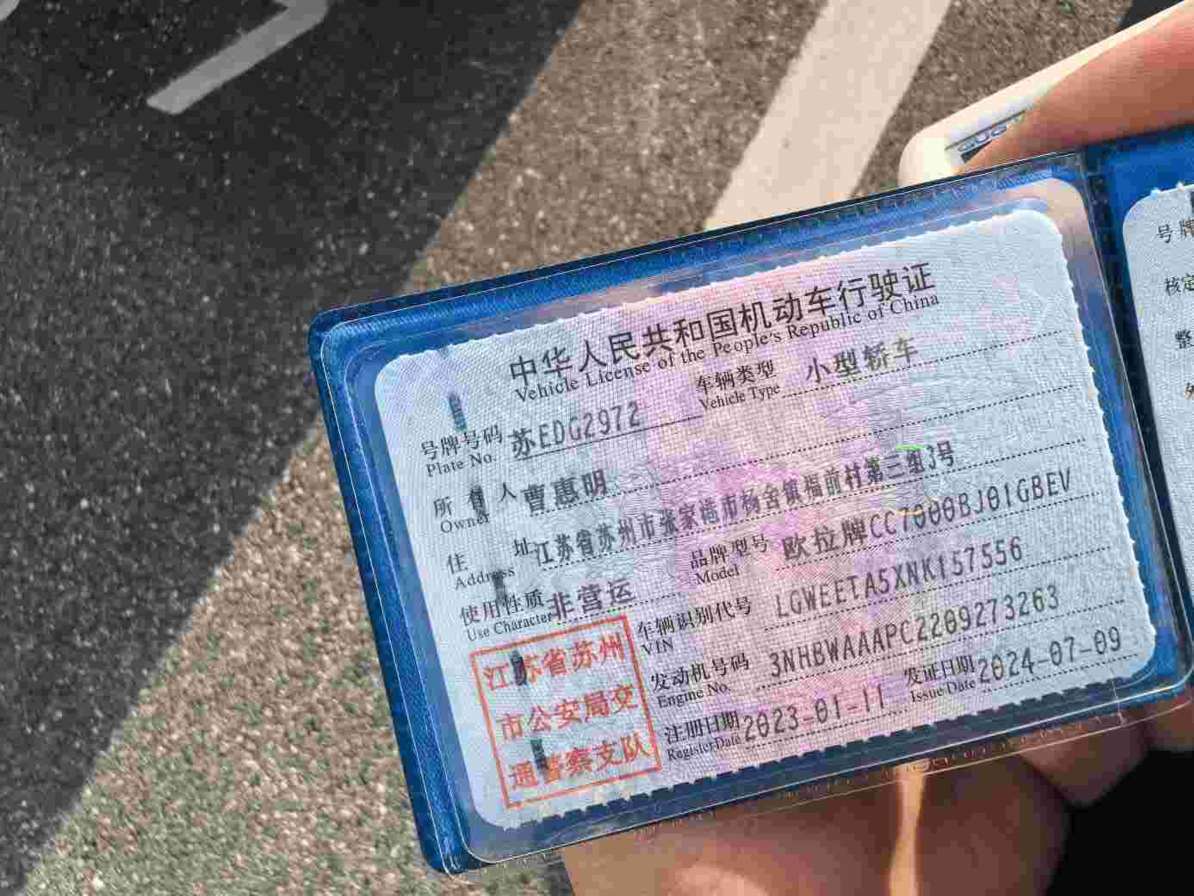 中华人民共和国机动车行驶证
Vehicle License of the People's Republic of China
号牌号码 苏EDG2972 车辆类型 小型轿车
Plate No. Vehicle Type
所有人 曹惠明
Owner
住址 江苏省苏州市张家港市杨舍镇福前村第三组3号
Address
使用性质 非营运 品牌型号 欧拉牌CC7000BJ01GBEV
Use Character Model
车辆识别代号 LGWEETA5XNK157556
VIN
发动机号码 3NHBWAAAPC2209273263
Engine No.
注册日期 2023-01-11 发证日期 2024-07-09
Register Date Issue Date
江苏省苏州
市公安局交
通警察支队
号牌
核定
整